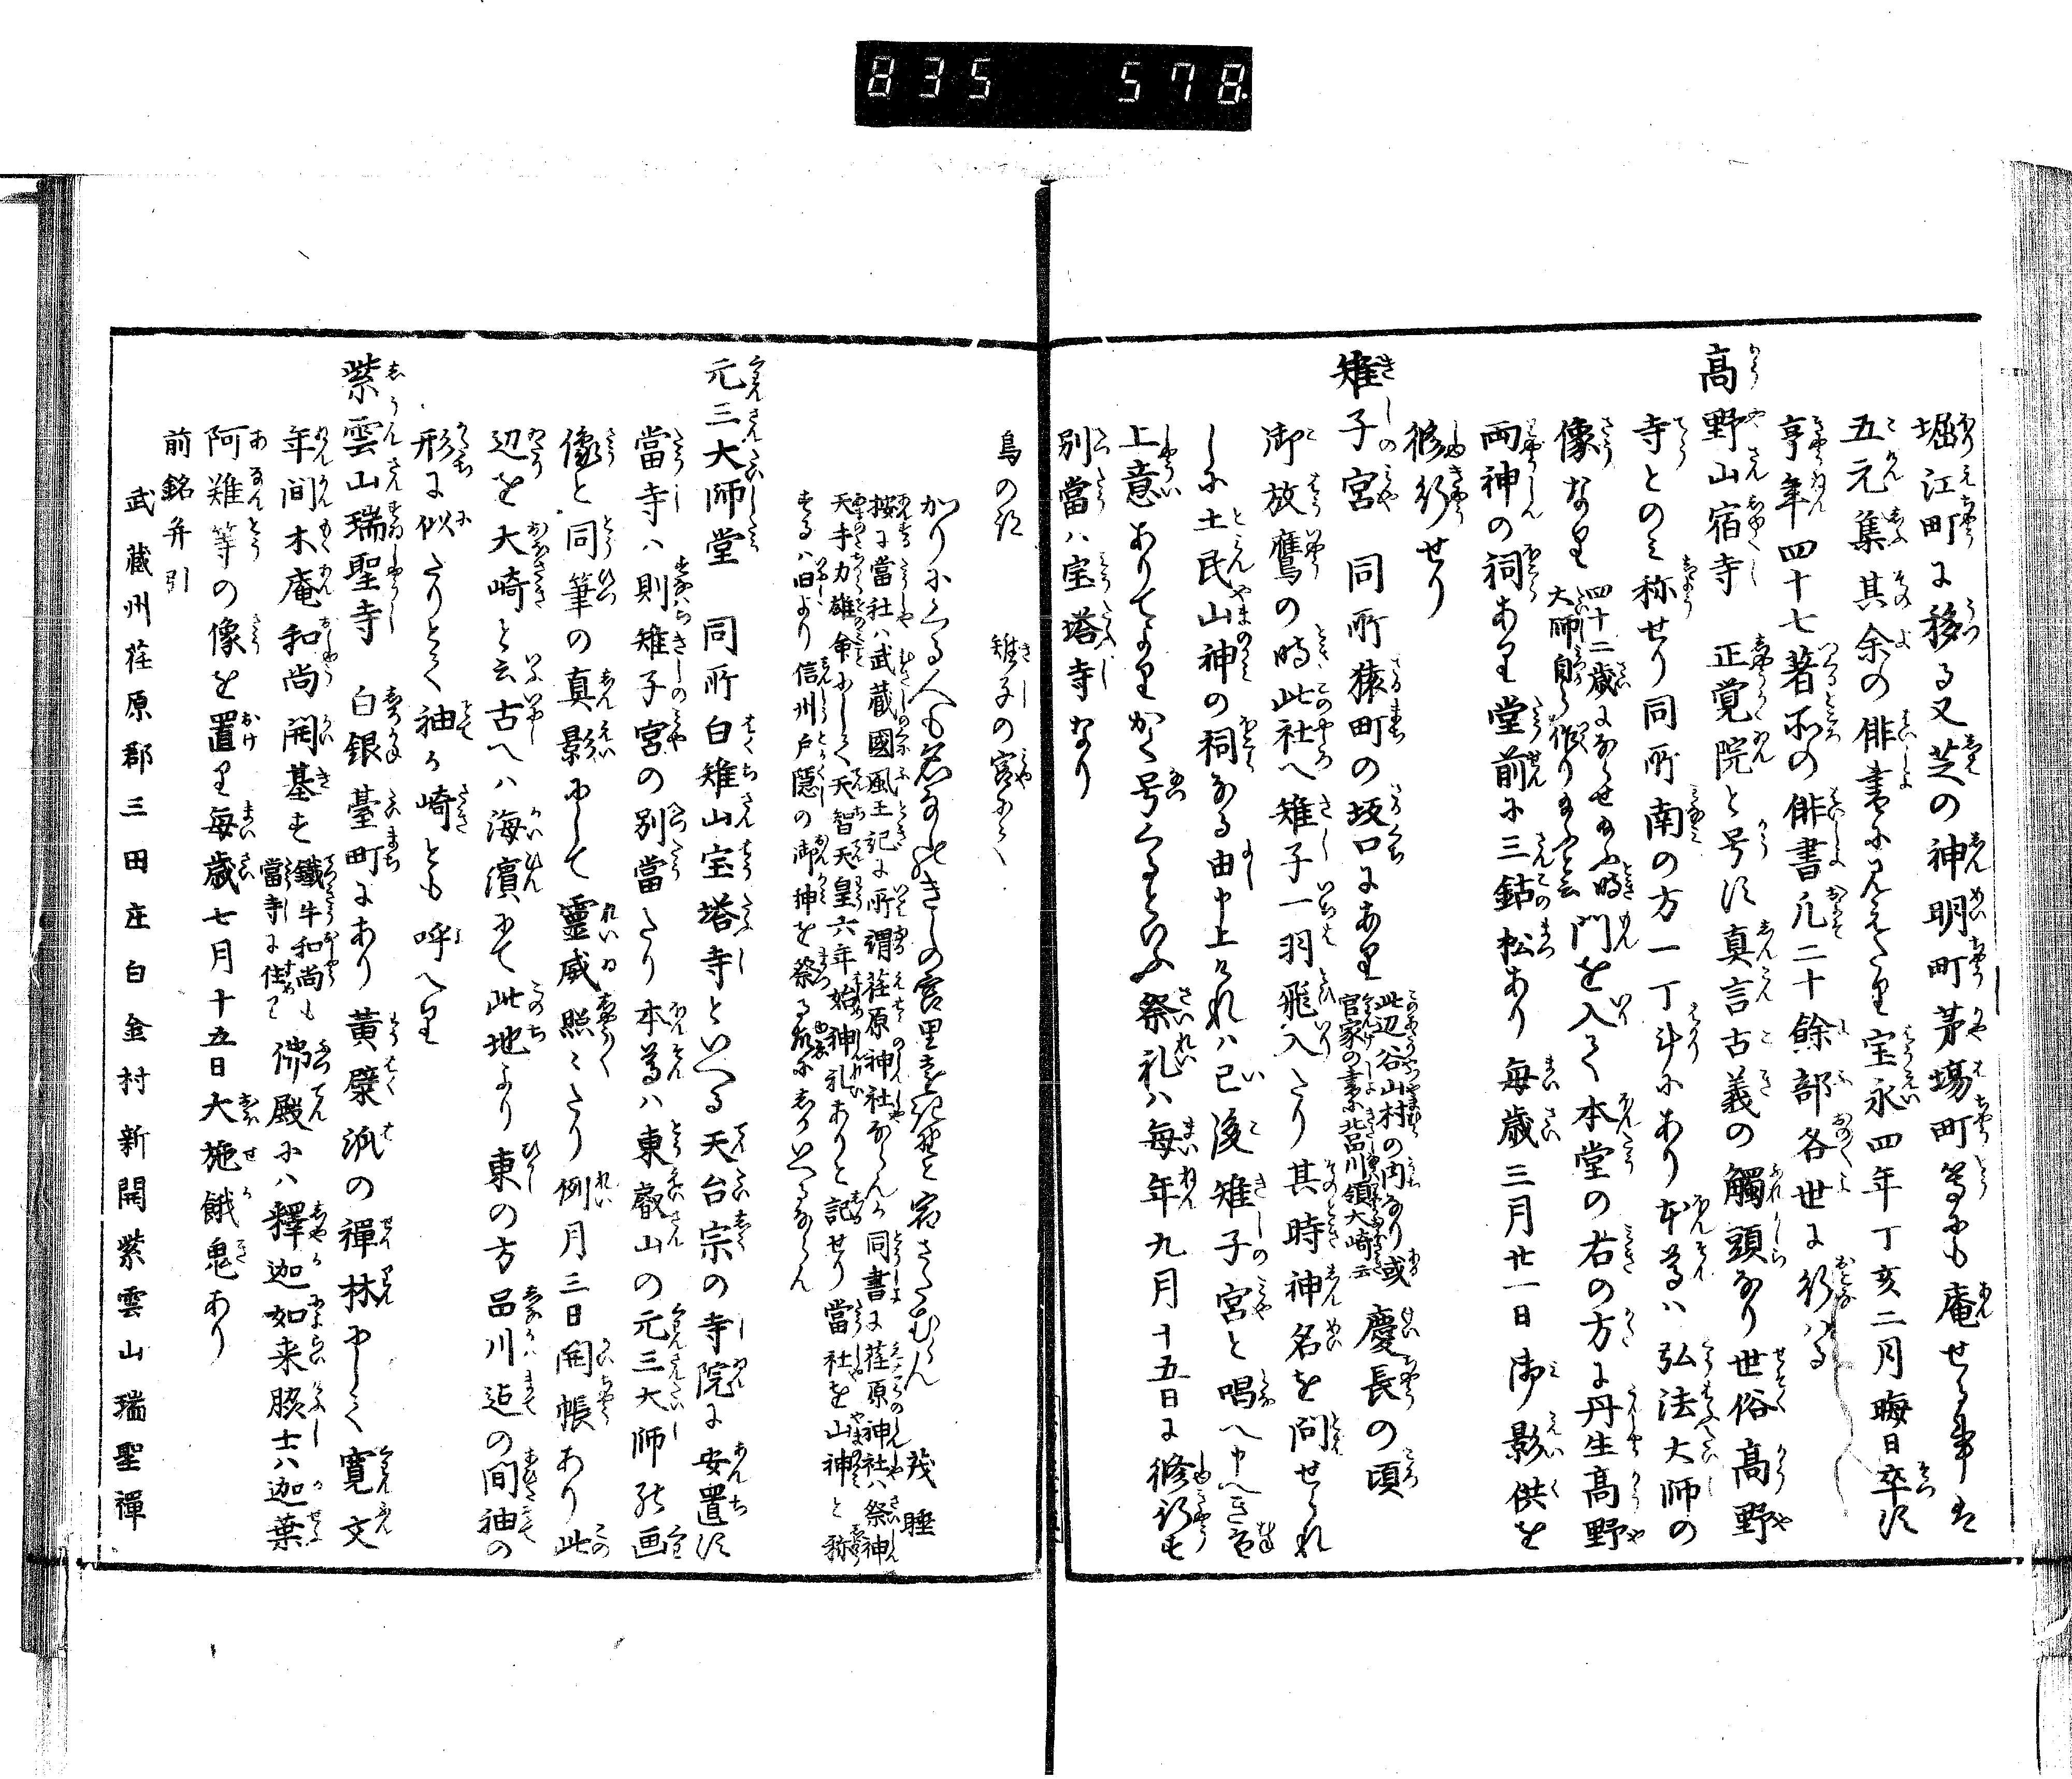 835 578
堀江町に移る又芝の神明町茅場町等にも庵せる事は
五元集其余の俳書にみえたり宝永四年丁亥二月晦日卒す
享年四十七著所の俳書凡二十餘部各世に行はる
高野山宿寺 正覚院と号す真言古義の觸頭なり世俗高野
寺とのミ称せり同所南の方一丁斗にあり本尊ハ弘法大師の
像なり四十二歳にならせ給ふ時大師自ら作り給ふと云門を入て本堂の右の方に丹生高野
両神の祠あり堂前に三鈷松あり毎歳三月廿一日御影供を
修行せり
雉子宮 同所猿町の坂口にあり此辺谷山村の内なり或官家の書に北品川領大崎云慶長の頃
御放鷹の時此社へ雉子一羽飛入たり其時神名を問せられ
しに土民山神の祠なる由申上けれハ已後雉子宮と唱へ申へき旨
上意ありてよりかく号るといふ祭礼ハ毎年九月十五日に修行も
別當ハ宝塔寺なり
鳥の跡 雉子の宮にて
かりにくる人も名なのきしの宮里を遠と宿さたむらん 茂睡
按に當社ハ武蔵國風土記に所謂荏原神社ならんか同書に荏原神社ハ祭神
天手力雄命にして天智天皇六年始神礼ありと記せり當社を山神と称
するハ旧より信州戸隠の御神を祭る故にしかいへるならん
元三大師堂 同所白雉山宝塔寺といへる天台宗の寺院に安置す
當寺ハ則雉子宮の別當たり本尊ハ東叡山の元三大師の画
像と同筆の真影にして靈威照〻たり例月三日開帳あり此
辺を大崎と云古へハ海濱にて此地より東の方品川迄の間袖の
形に似たりとて袖か崎とも呼へり
紫雲山瑞聖寺 白銀臺町にあり黄檗派の禪林にして寛文
年間木庵和尚開基す鐵牛和尚も當寺に住せり佛殿にハ釋迦如来脇士ハ迦葉
阿難等の像を置り毎歳七月十五日大施餓鬼あり
前銘并引
武蔵州荏原郡三田庄白金村新開紫雲山瑞聖禪